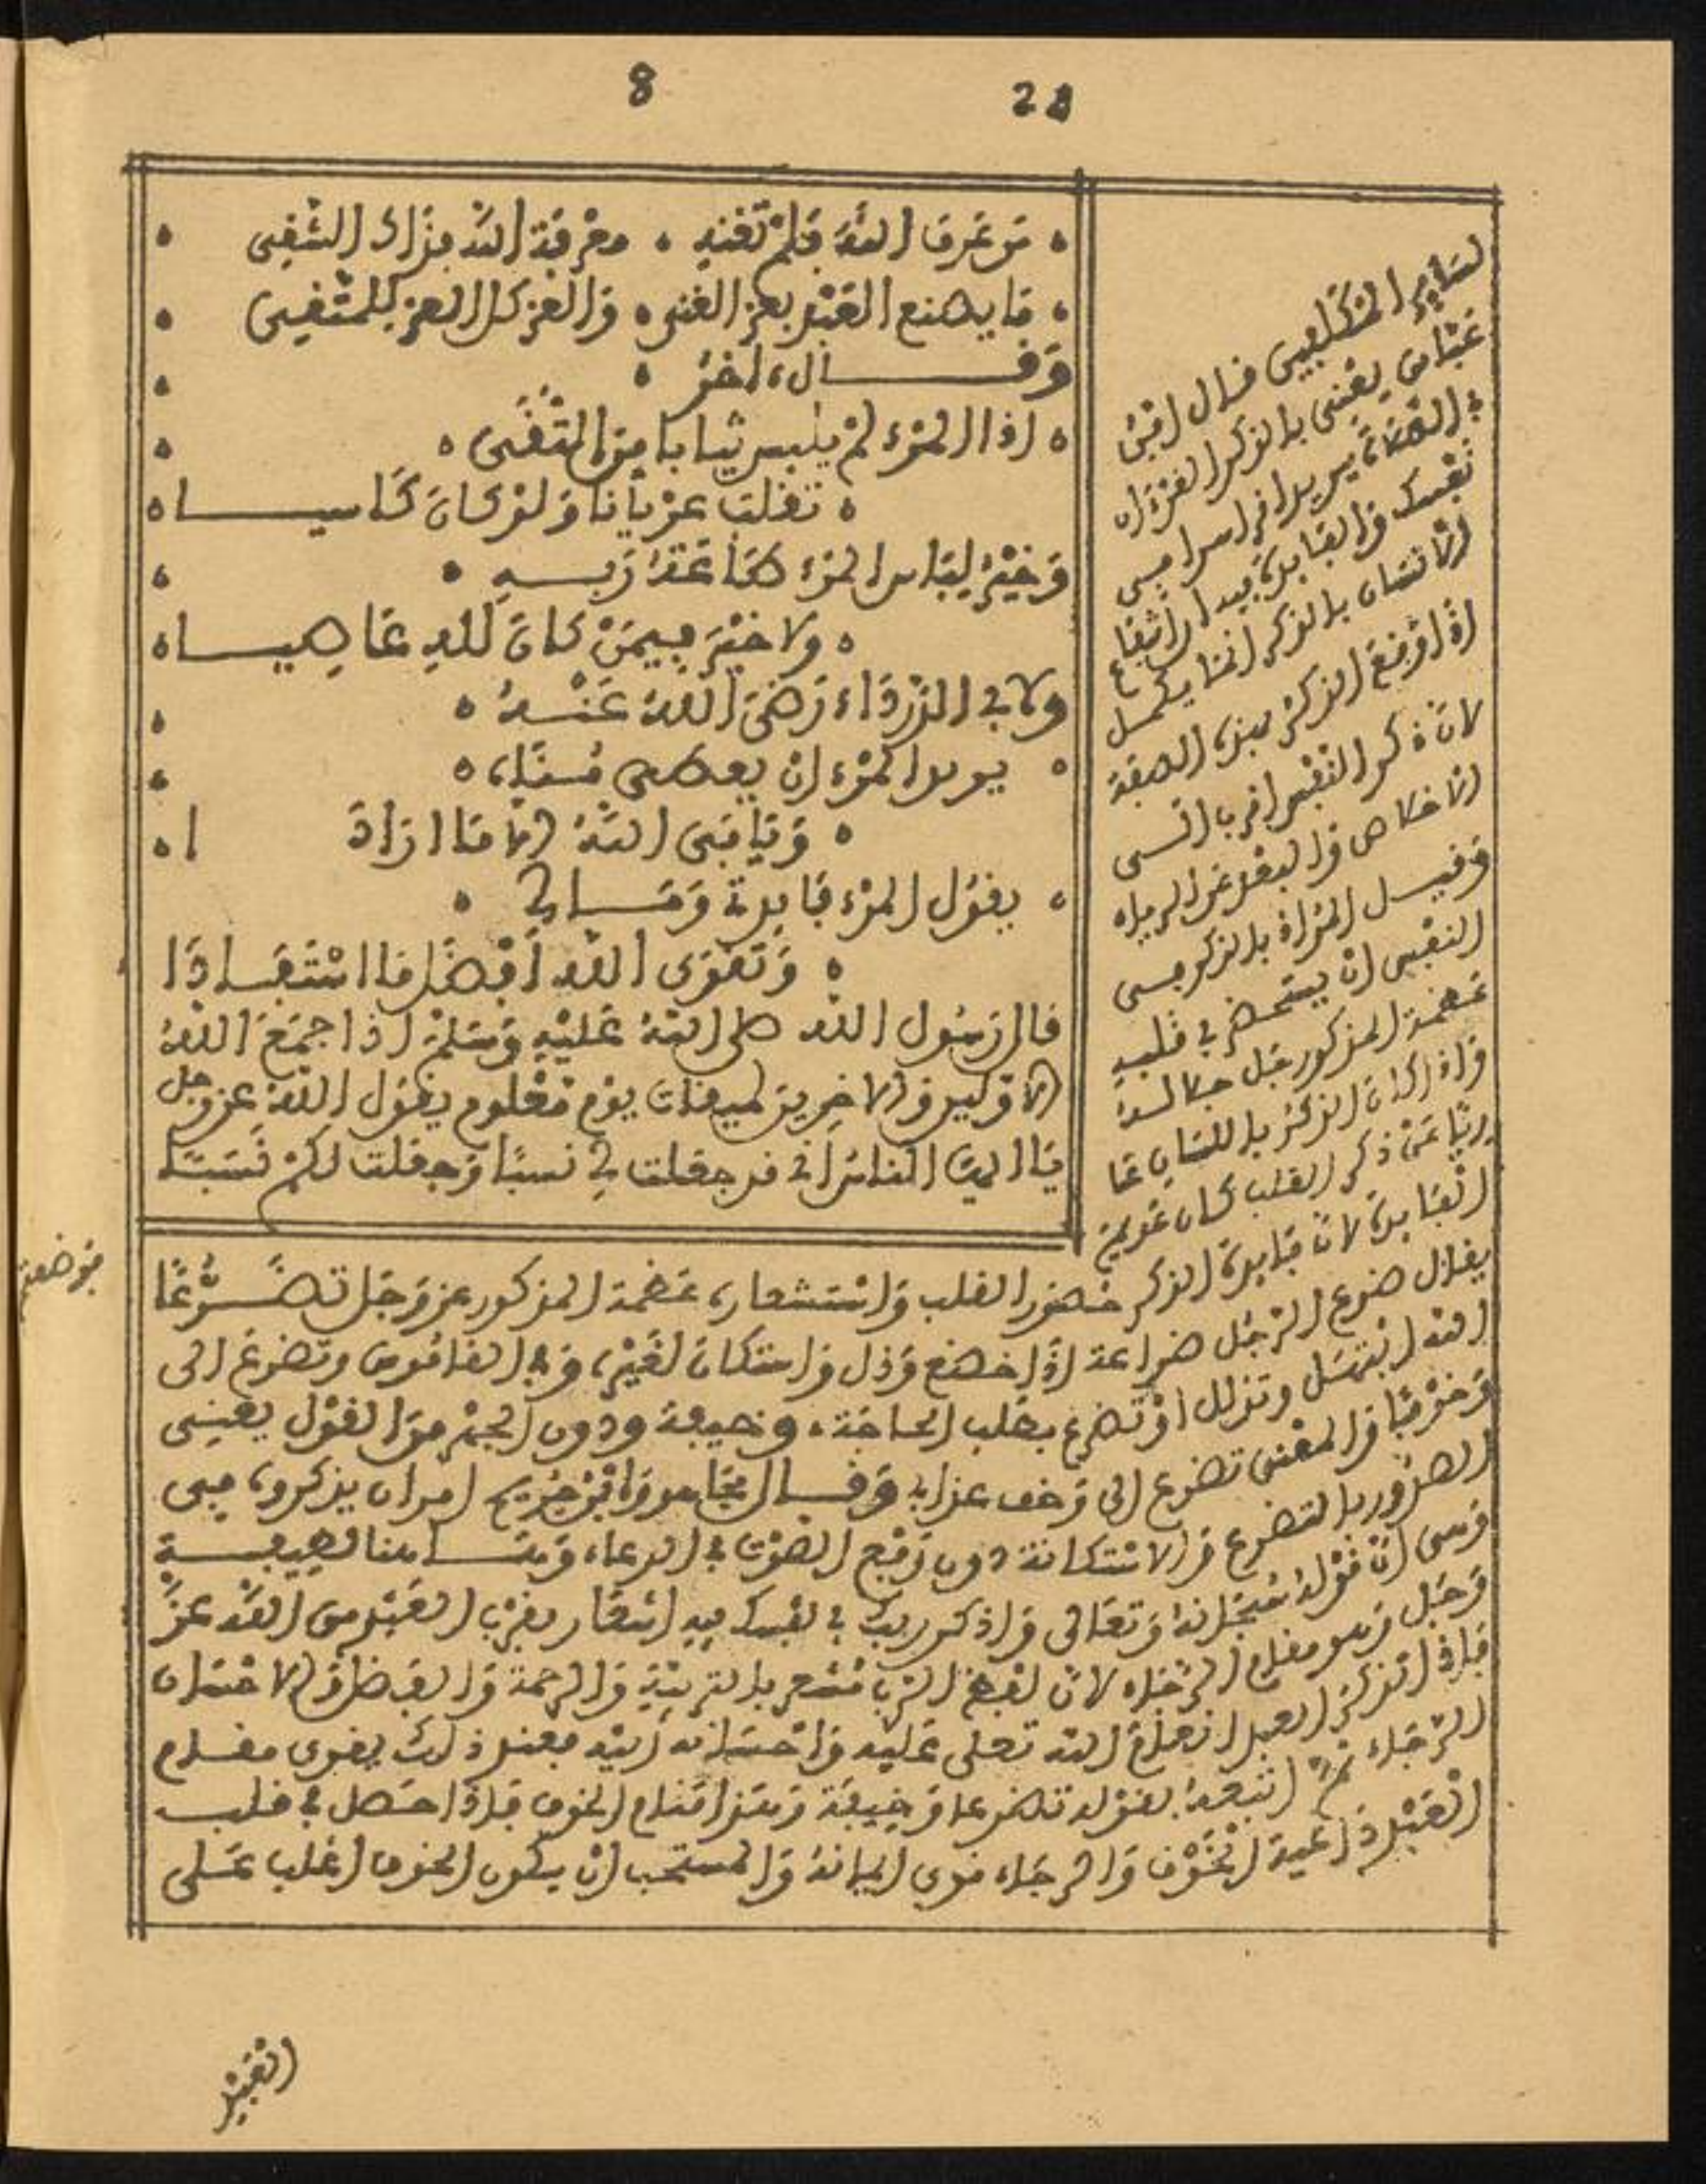 8 28
من عرف الله فلم تغنه معرفة الله فذاك الشقي
ما يصنع العبد بعز الغنى والعز كل العز للمتقي
وقال اخر
اذا المرء لم يلبس ثيابا من التقى
تقلب عريانا ولو كان كاسيا
وخير لباس المرء طاعة ربه
ولا خير فيمن كان لله عاصيا
ولابي الدرداء رضي الله عنه
يريد المرء ان يعطى مناه
ويابى الله الا ما ارادا
يقول المرء فايدتي ومالي
وتقوى الله افضل ما استفادا
قال رسول الله صلى الله عليه وسلم اذا جمع الله
الاولين والاخرين لميقات يوم معلوم يقول الله عز وجل
يا ايها الناس اني قد جعلت لي نسبا وجعلت لكم نسبا
لساير المكلفين قال ابن
عباس يعني بالذكر القرءان
في الصلاة يريد اقرا سرا في
نفسك والفايدة فيه ان انتفاع
الانسان بالذكر انما يكمل
اذا وقع الذكر بهذه الصفة
لان ذكر النفس اقرب الى
الاخلاص والبعد عن الرياء
وقيل المراد بالذكر في
النفس ان يستحضر في قلبه
عظمة المذكور جل جلاله
واذا كان الذكر باللسان عا
ريا عن ذكر القلب كان عديم
الفايدة لان فايدة الذكر حضور القلب واستشعاره عظمة المذكور عز وجل تضرعا
يقال ضرع الرجل ضراعة اذا خضع وذل واستكان لغيره وفي القاموس وتضرع الى
الله ابتهل وتذلل او تضرع بطلب الحاجة وخيفة ودون الجهر من القول يعني
وخوفا والمعنى تضرع الي وخف عذابي وقال مجاهد وابن جريج امر ان يذكروه في
الصدور بالتضرع والاستكانة دون رفع الصوت في الدعاء وهاهنا لطيفة
وهي ان قوله سبحانه وتعالى واذكر ربك في نفسك فيه اشعار بقرب العبد من الله عز
وجل وهو مقام الرجاء لان لفظ الرب مشعر بالتربية والرحمة والفضل والاحسان
فاذا تذكر العبد انعام الله تعلى عليه واحسانه اليه فعند ذلك يقوى مقام
الرجاء ثم اتبعه بقوله تضرعا وخيفة وهذا مقام الخوف فاذا حصل في قلب
العبد داعية الخوف والرجاء قوي ايمانه والمستحب ان يكون الخوف اغلب على
العبد